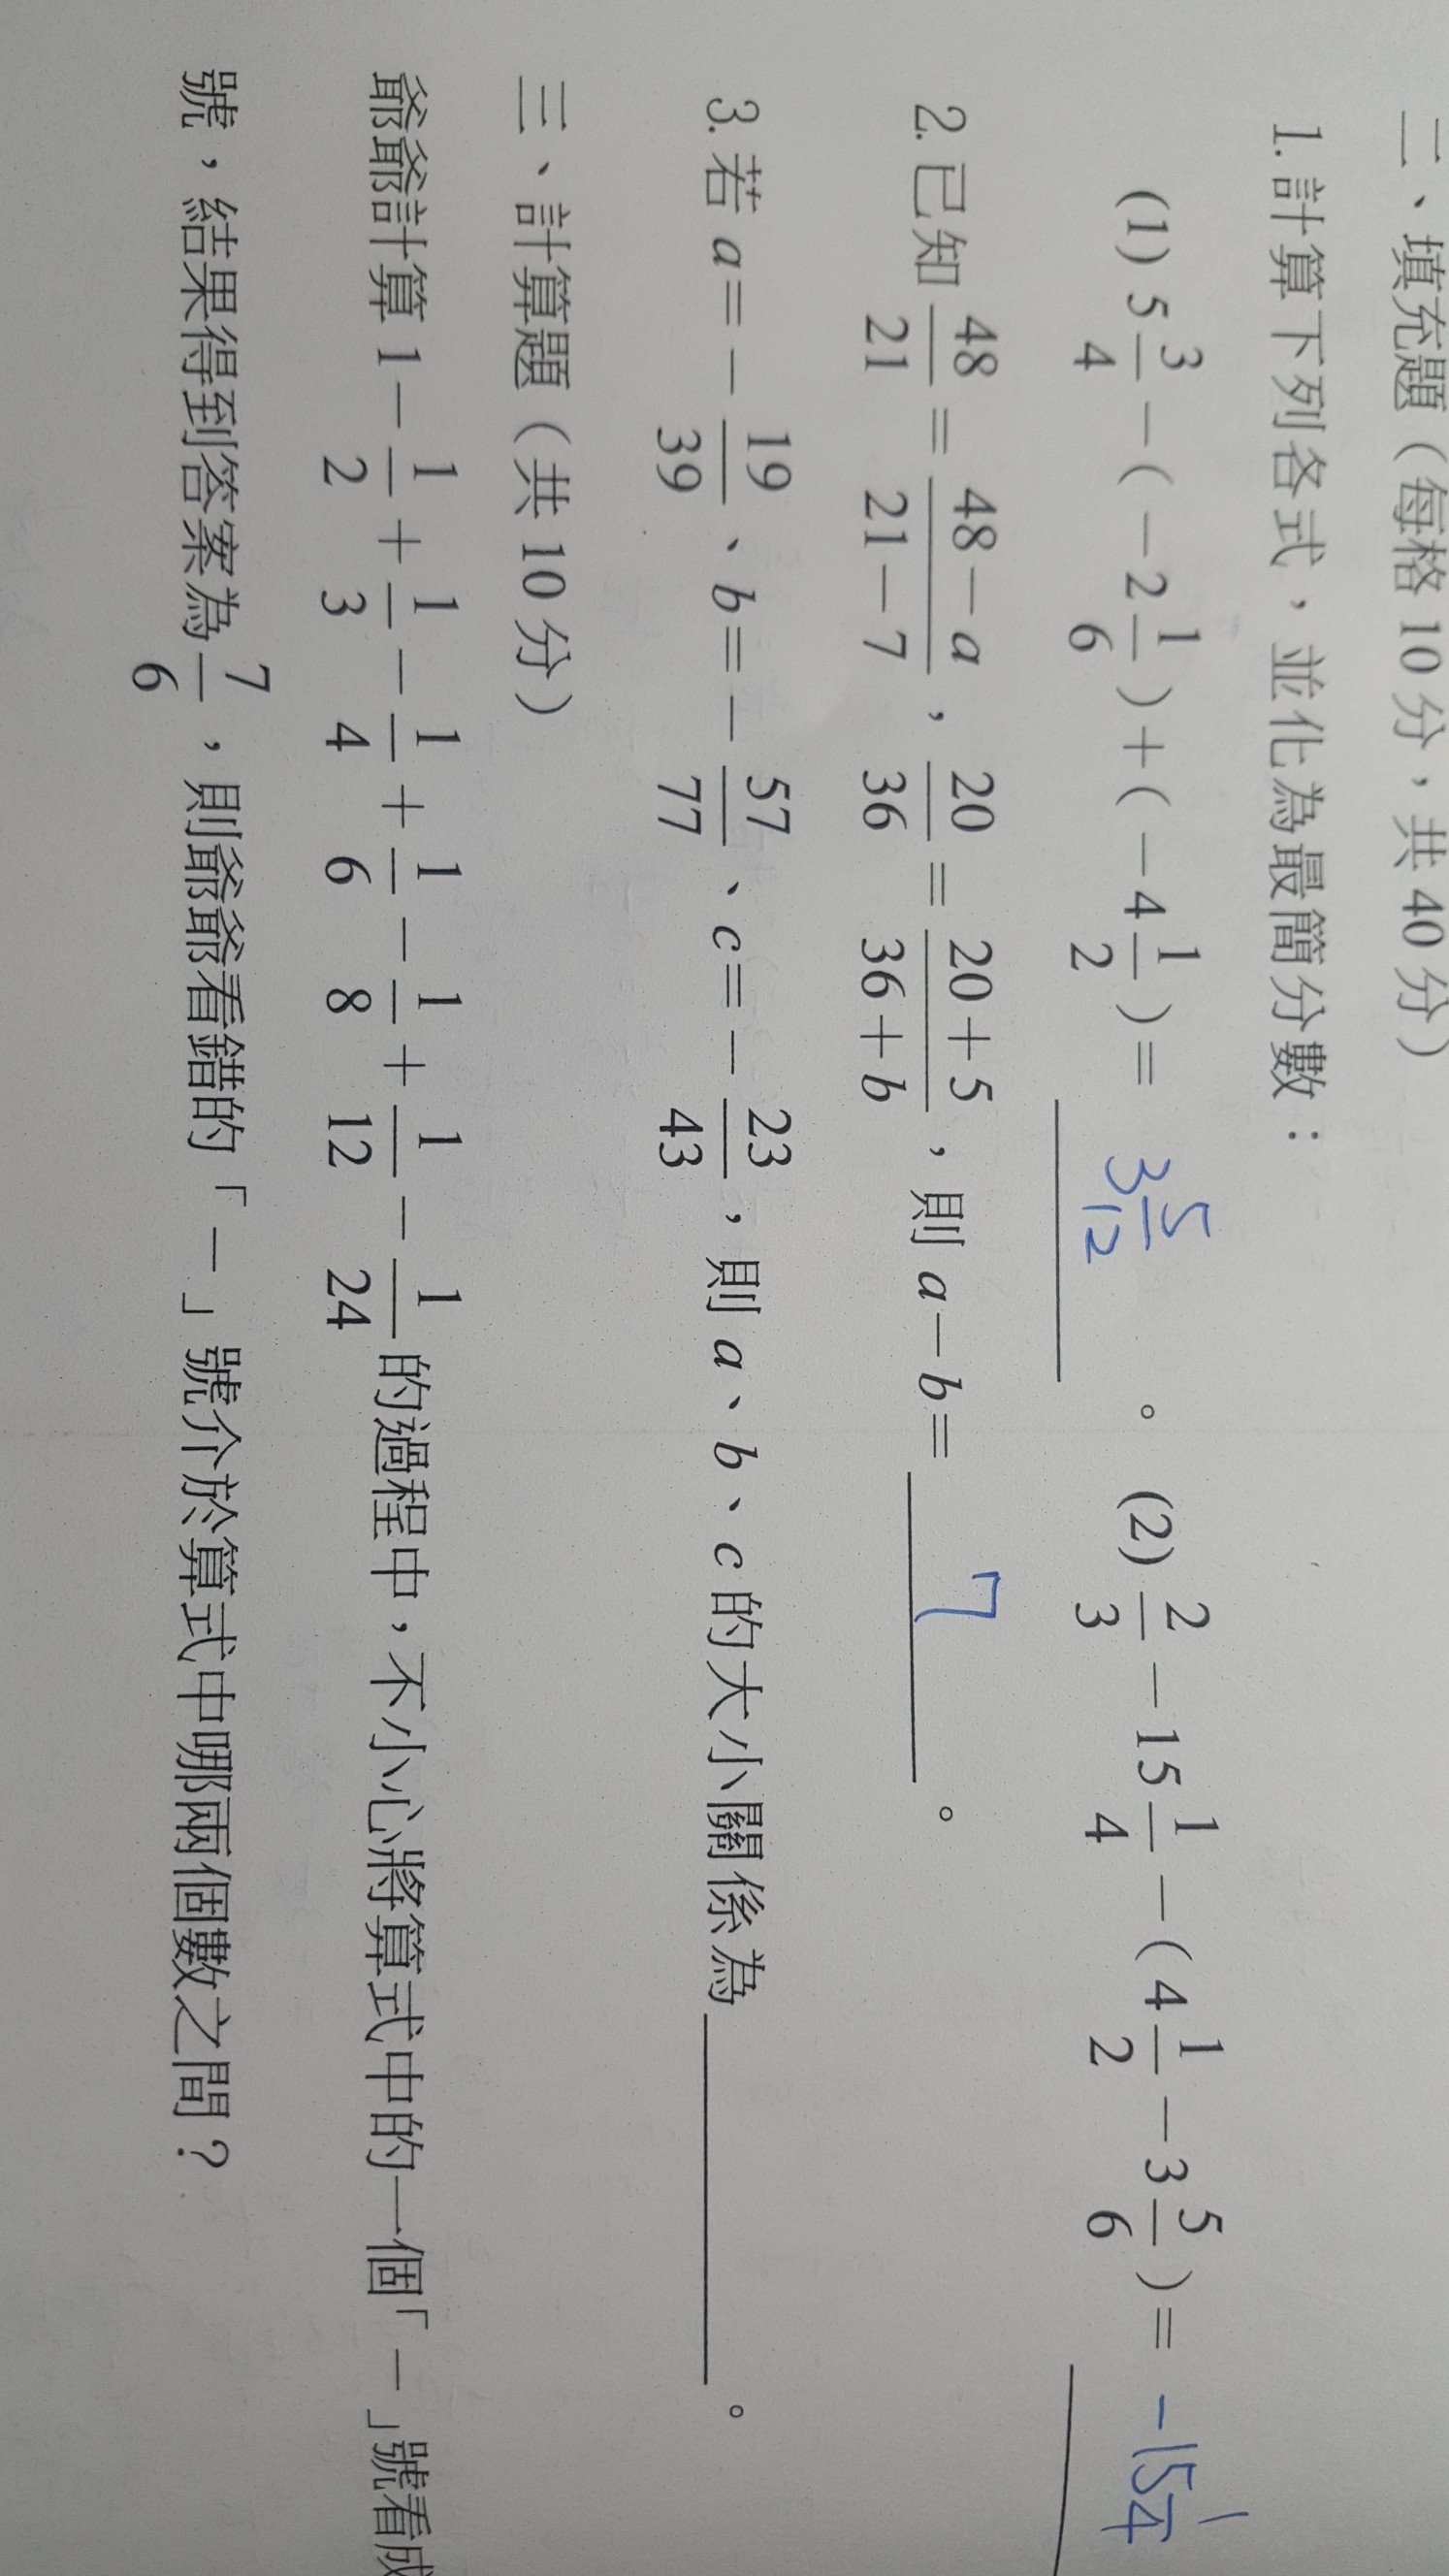 二、填充題（每格 10 分，共 40 分）
1. 計算下列各式，並化為最簡分數：
(1) 5 3/4 －（－2 1/6）＋（－4 1/2）＝ 3 5/12 。 (2) 2/3 －15 1/4 －（4 1/2 －3 5/6）＝ －15 1/4
2. 已知 48/21 ＝ (48－a)/(21－7)，20/36 ＝ (20＋5)/(36＋b)，則 a－b＝ 7 。
3. 若 a＝－19/39、b＝－57/77、c＝－23/43，則 a、b、c 的大小關係為 。
三、計算題（共 10 分）
爺爺計算 1－1/2＋1/3－1/4＋1/6－1/8＋1/12－1/24 的過程中，不小心將算式中的一個「－」號看成
號，結果得到答案為 7/6，則爺爺看錯的「－」號介於算式中哪兩個數之間？